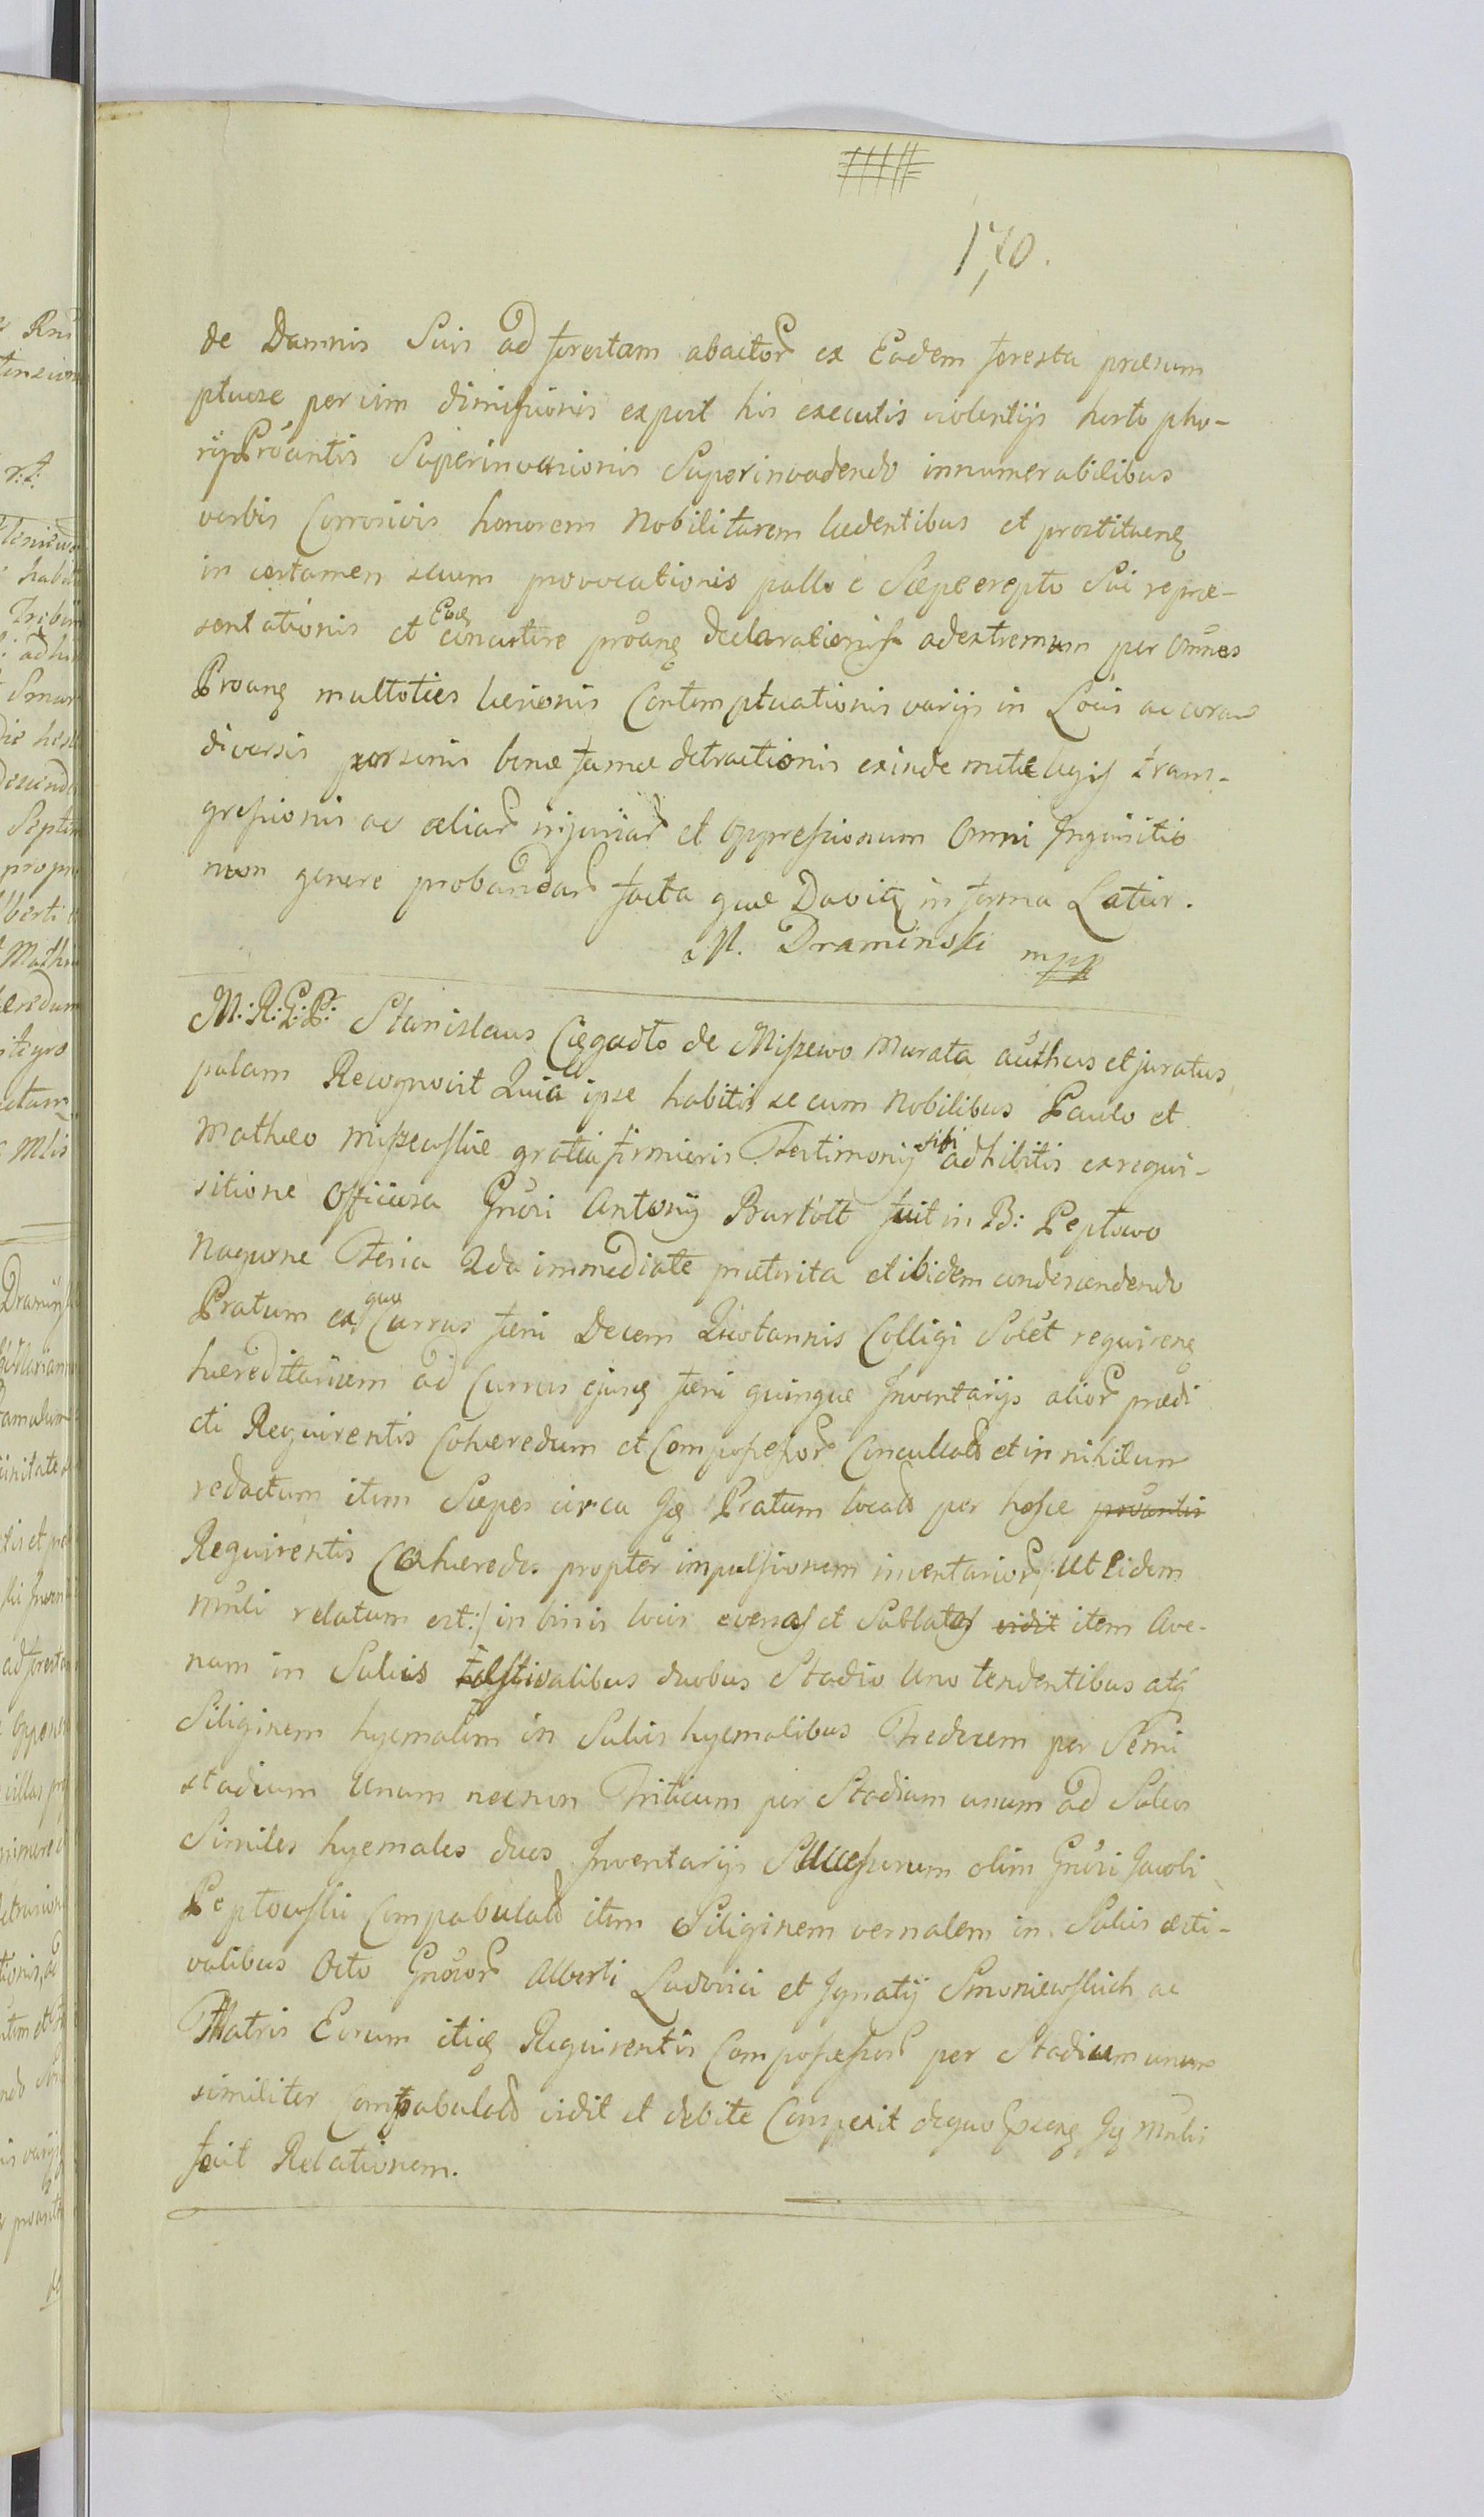 170.
de Damnis Suis ad forestam abactor ex Eadem foresta præsum
ptuose per vim dimissionis expost his executis violentijs horto pho-
rij Proantis Superinvasionis Superinvadendo innumerabilibus
verbis Corrosivis honorem Nobilitarem lædentibus et prostitueng
in certamen secum provocationis pallo è Sæpe erepto Sui repræ-
sentationis et Eoq concutere proang declarationis adextremum per omnes
Proang multoties læsionis Contemptuationis varijs in Locis ac coram
diversis personis bonæ famæ detractionis exinde metæ legis trans-
gressionis ac aliar injuriar et oppressionum Omni Inquisitio
num genere probandar facta quæ Daviq in forma Latiur.
M. Draminski mpp
M: R: G: P: Stanislaus Cięgadło de Miszewo Murata authus et juratus
palam Recognovit Quia ipse habitis secum Nobilibus Paulo et
Matheo Miszewskie gratia firmioris Testimonij sibi adhibitis ex requi-
sitione Officiosa Gnosi Antonij Bartołt fuit in B: Peptowo
Nagorne Feria 2da immediate præterita et ibidem condescendendo
Pratum ex quo Currus fæni Decem Quotannis Colligi Solet requireng
hæreditarium ad Currus ejusq fæni quinque Inventarijs alior prædi
cti Requirentis Cohæredum et Compossessor Conculcatt et in nihilum
redactum item Sæpes circa Iq Pratum locatt per hosce proantis
Requirentis Cohæredes propter impulsionem inventarior /: ut eidem
mnli relatum est :/ in binis locis eversas et Sublatas vidit item Ave-
nam in Sulcis æstivalibus duobus Stadio Uno tendentibus atq
Siliginem hyemalem in Sulcis hyemalibus Tredecem per Semi
stadium Unum necnon Triticum per Stadium unum ad Sulcos
Similes hyemales duos Inventarijs Successorum olim Gnosi Jacobi
Peptowski Compabulatt item Siliginem vernalem in Sulcis æsti-
valibus Octo Gnosor Alberti Ludovici et Ignatij Smoniewskich ac
Matris Eorum itidq Requirentis Compossessor per Stadium unum
similiter Compabulatt vidit et debite Conspexit dequo Iq Mnlis
fecit Relationem.